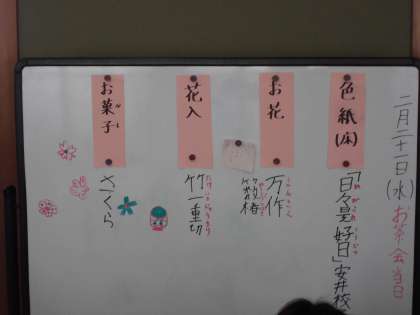 二月二十一日(水)お茶会当日
色紙(床)
「日々是好日」安井
お花
万作
椿
花入
竹一重切
お菓子
さくら